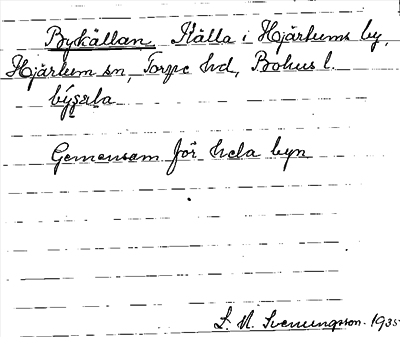 Bykällan Källa i Hjärtums by,
Hjärtum sn, Torpe hd, Bohus l.
Gemensam för hela byn
S. M. Svenungsson. 1935